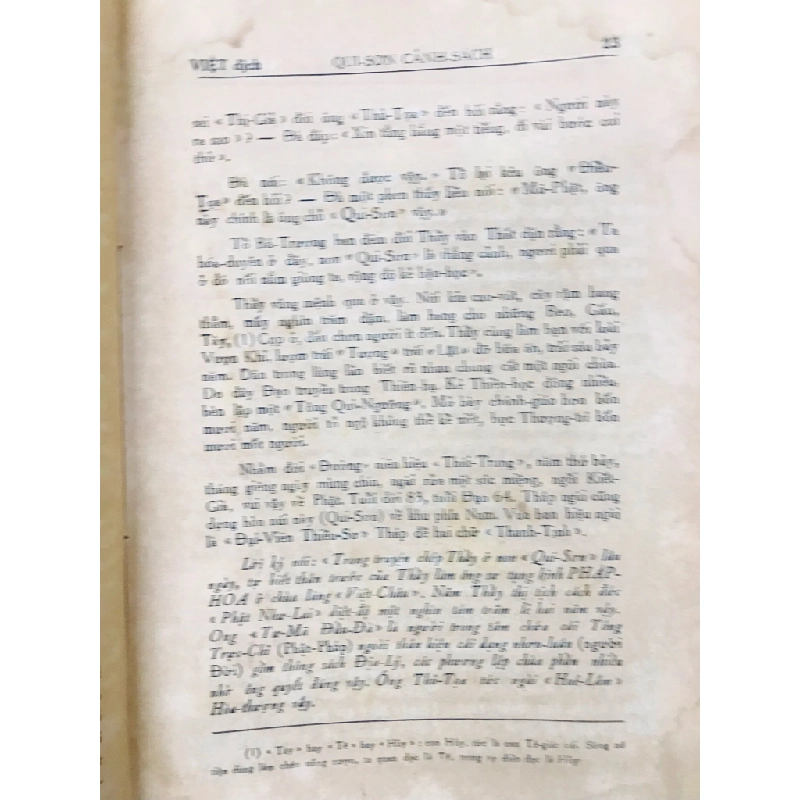 VIỆT dịch QUI-SƠN CẢNH-SÁCH 23
sai « Thị-Giả » đòi ông « Thủ-Tọa » đến hỏi rằng: « Người này
ra sao » ? — Đá đáp: « Xin tằng hắng một tiếng, đi vài bước coi
thử ».
Đà nói: « Không được vậy. » Tổ lại kêu ông « Điển-
Tọa » đến hỏi ? — Đà một phen thấy liền nói: « Mô-Phật, ông
này chính là ông chủ « Qui-Sơn » vậy. »
Tổ Bá-Trượng ban đêm đòi Thầy vào Thất dặn rằng: « Ta
hóa-duyên ở đây, non « Qui-Sơn » là thắng cảnh, ngươi phải qua
ở đó nối nắm giùng ta, rộng độ kẻ hậu-học ».
Thầy vâng mệnh qua ở vậy. Núi kia cao-vót, cây rậm hang
thẳm, mấy nghìn trăm dặm, làm hang cho những Beo, Gấu,
Tây, (1) Cọp ở, dấu chơn người ít đến. Thầy cùng làm bạn với loài
Vượn Khỉ, lượm trái « Tượng » trái « Lật » đỡ bữa ăn, trải sáu bảy
năm. Dân trong làng lần biết rủ nhau chung cất một ngôi chùa.
Do đây Đạo truyền trong Thiên-hạ. Kẻ Thiền-học đông nhiều,
bèn lập một « Tông Qui-Ngưỡng ». Mở bày chánh-giáo hơn bốn
mươi năm, người tỏ ngộ không thể kể xiết, bực Thượng-trí bốn
mươi mốt người.
Nhằm đời « Đường » niên hiệu « Thái-Trung », năm thứ bảy,
tháng giêng ngày mùng chín, ngài rửa mặt súc miệng, ngồi Kiết-
Già, vui vậy về Phật. Tuổi đời 83, tuổi Đạo 64. Tháp ngài cũng
dựng bên núi này (Qui-Sơn) về khu phía Nam. Vua ban hiệu ngài
là « Đại-Viên Thiền-Sư » Tháp đề hai chữ « Thanh-Tịnh ».
Lời ký nói: « Trong truyện chép Thầy ở non « Qui-Sơn » lâu
ngày, tự biết thân trước của Thầy làm ông sư tụng kinh PHÁP-
HOA ở chùa làng « Việt-Châu ». Năm Thầy thị tịch cách đức
« Phật Như-Lai » diệt-độ một nghìn tám trăm lẻ hai năm vậy.
Ông « Tư-Mã Đầu-Đà » là người trong tâm chứa cái Tông
Trực-Chỉ (Phật-Pháp) ngoài thân hiện cái dạng nhơn-luân (người
Đời) gồm thông sách Địa-Lý, các phương lập chùa phần nhiều
nhờ ông quyết đúng vậy. Ông Thủ-Tọa tức ngài « Hoa-Lâm »
Hòa-thượng vậy.
(1) « Tây » hay « Tê » hay « Hủy » : con Hủy, tức là con Tê-giác cái.